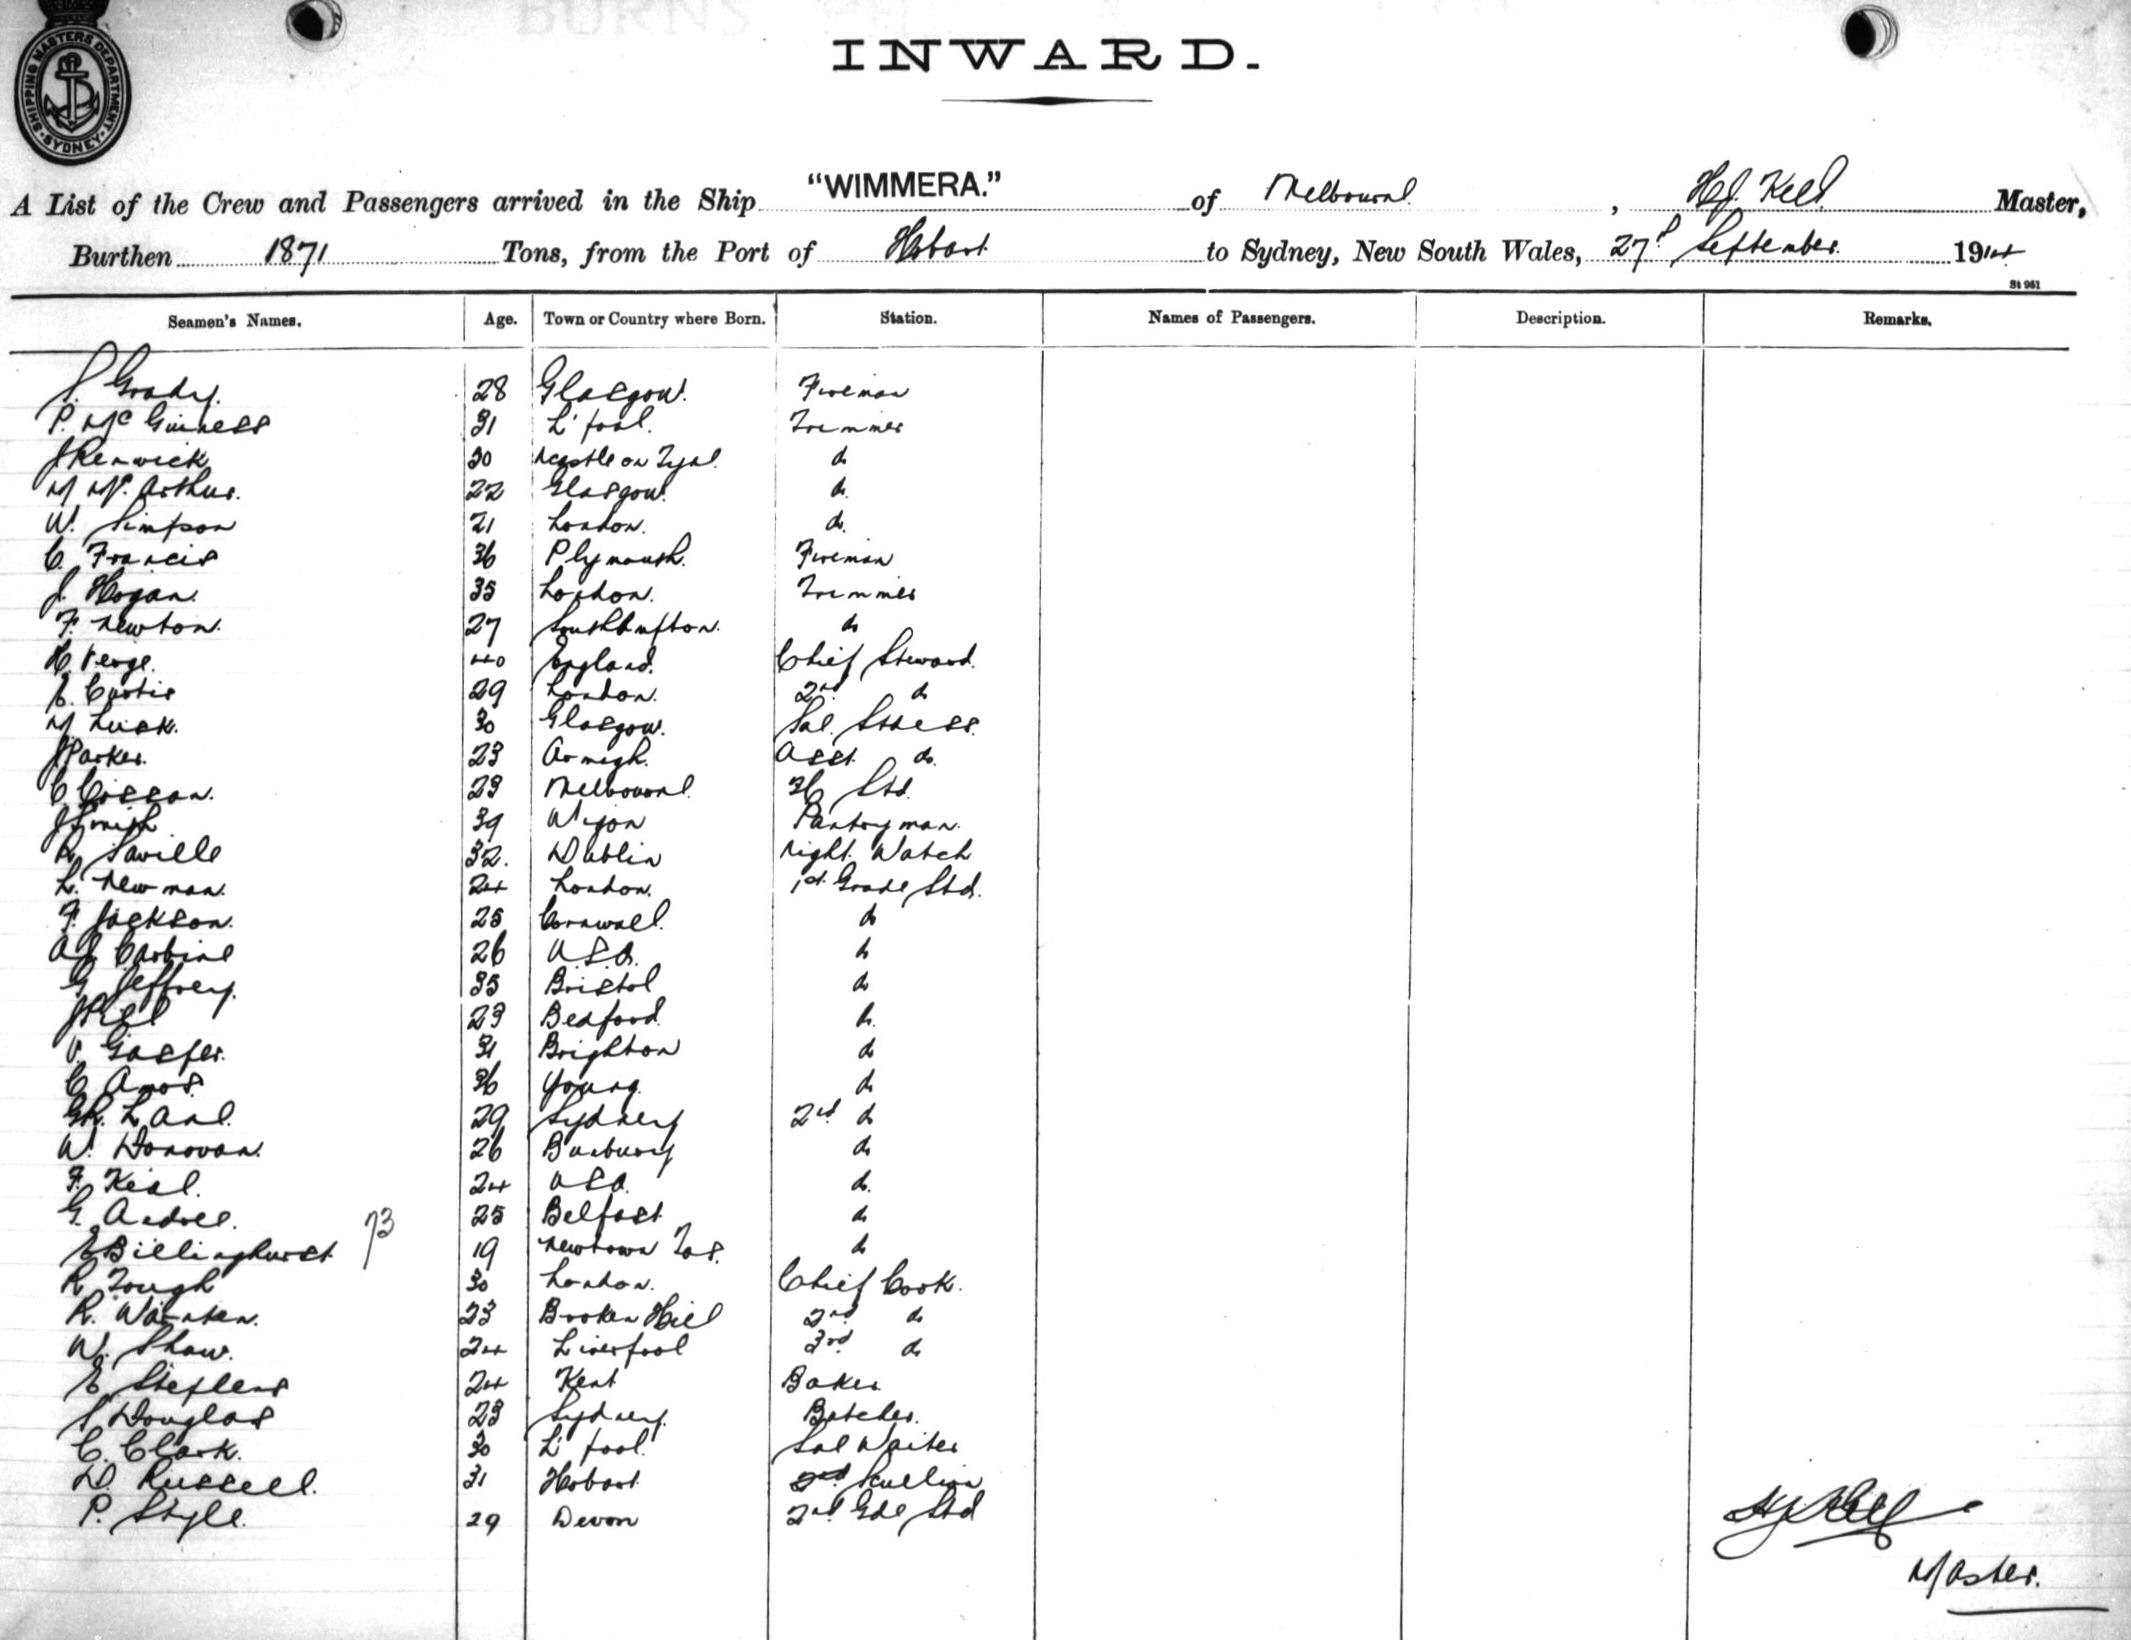 SHIPPING MASTERS DEPARTMENT SYDNEY
INWARD.
A List of the Crew and Passengers arrived in the Ship "WIMMERA." of Melbourne, HJ. Kell Master,
Burthen 1871 Tons, from the Port of Hobart to Sydney, New South Wales, 27th September 1914
St 961
Seamen's Names. Age. Town or Country where Born. Station. Names of Passengers. Description. Remarks.
S. Grady. 28 Glasgow. Fireman
P. McGuiness 31 L'pool. Trimmer
J Renwick 30 Ncastle on Tyne. do
M McArthur. 22 Glasgow. do
W. Simpson 21 London. do.
C. Francis 36 Plymouth. Fireman
J. Hogan. 35 London. Trimmer
F. Newton. 27 Southampton. do
H. Verge. 40 England. Chief Steward.
E. Curtis 29 London. 2nd do
M Lusk. 30 Glasgow. Sal. Stdess.
J Parker. 23 Armagh. Asst. do.
C. 23 Melbourne. Std.
J Smith 39 Wigan Pantryman.
R. Saville 32. Dublin Night Watch
L. Newman. 24 London. 1st Grade Std.
F. Jackson. 25 Cornwall. do
A.J. Carbine 26 USA. do
G. Jeffrey. 35 Bristol do
J Hill 23 Bedford. do.
V. Gasper. 31 Brighton do
C Amos. 36 Young. do
GR. Lane. 29 Sydney 2nd do
W. Donovan. 26 Bunbury do
F. 24 USA. do.
G. 25 Belfast do
73
E Billinghurst. 19 Newtown Tas. do
R Tough 30 London. Chief Cook.
R. 23 Broken Hill 2nd do
W. Shaw. 24 Liverpool 3rd do
E. Stephens 24 Kent Baker
S Douglas 23 Sydney. Butcher.
C. Clark. 30 L'pool. Sal Waiter
D. Russell. 31 Hobart. Scullion
P. Style. 29 Devon 2nd Gde Std
HJ Kell
Master.